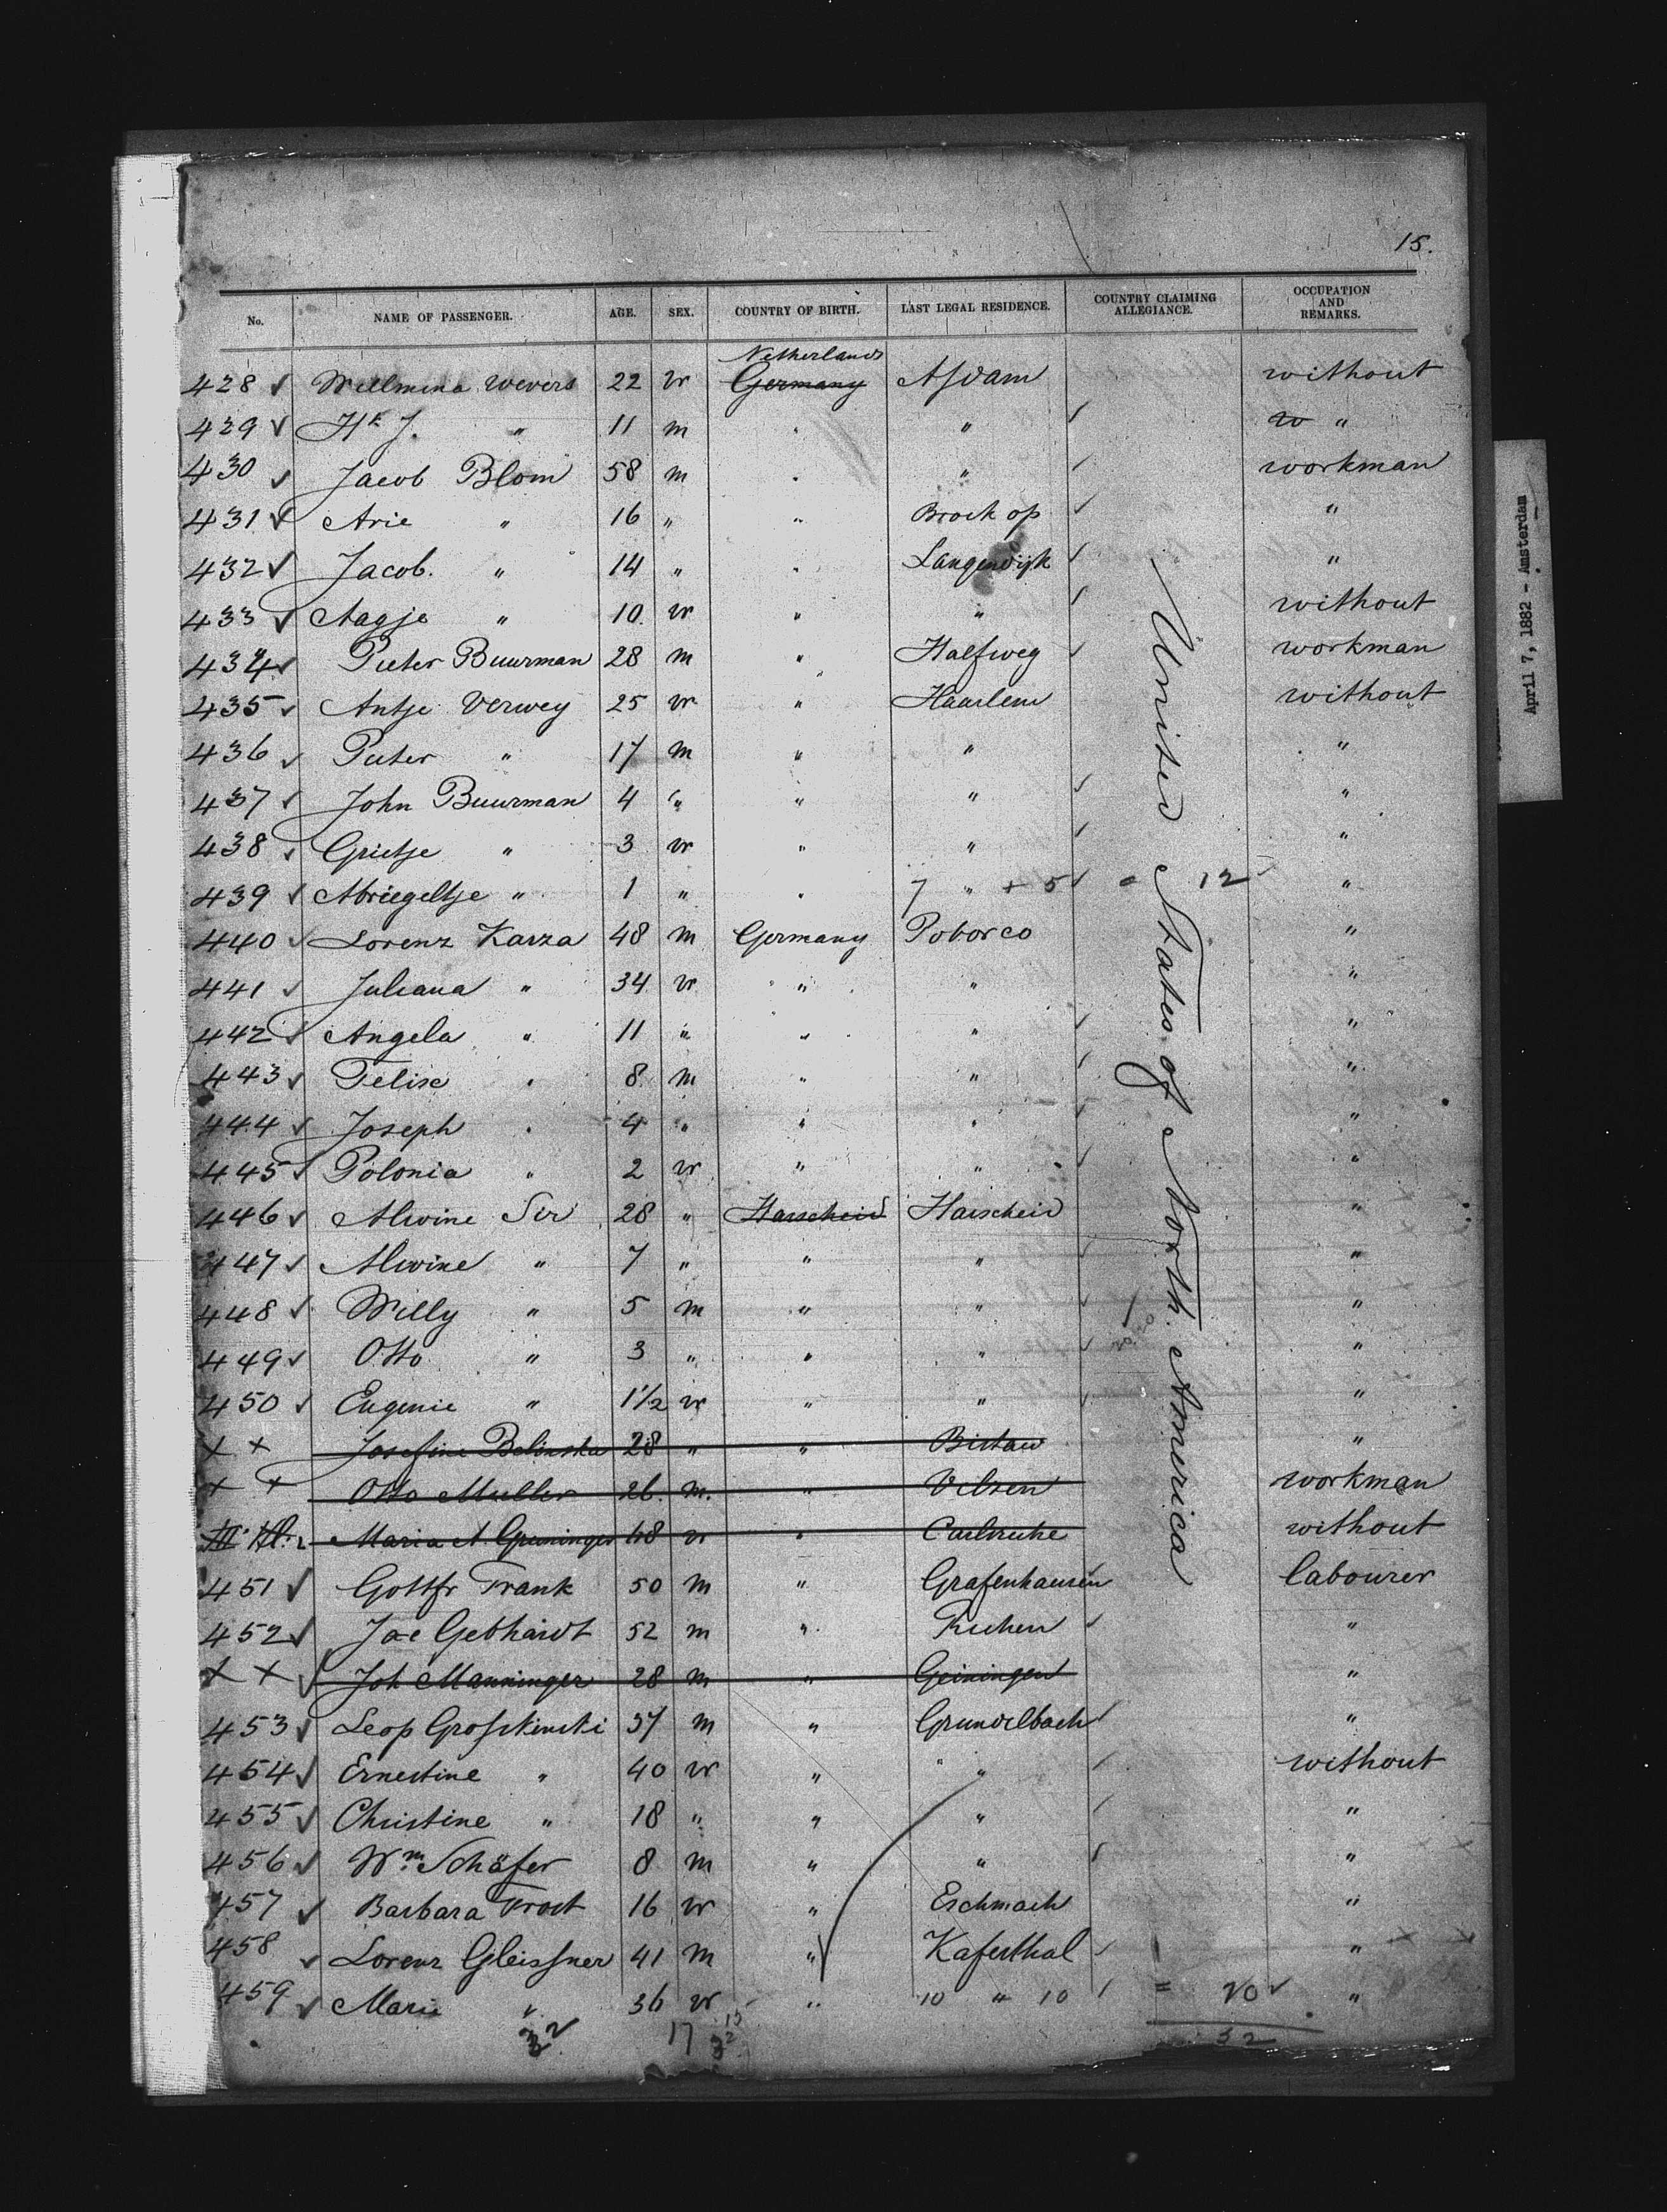 15.
No. NAME OF PASSENGER. AGE. SEX. COUNTRY OF BIRTH. LAST LEGAL RESIDENCE. COUNTRY CLAIMING ALLEGIANCE. OCCUPATION AND REMARKS.
Netherlands
428 ✓ Willmina Wevers 22 vr Germany Asdam without
429 ✓ Hk J. " 11 m " " ✓ w "
430 ✓ Jacob Blom 58 m " " ✓ workman
431 ✓ Arie " 16 " " Broek op ✓ "
432 ✓ Jacob. " 14 " " Langendijk ✓ "
433 ✓ Aagje " 10 vr " " ✓ without
434 ✓ Pieter Buurman 28 m " Halfweg ✓ workman
435 ✓ Antje Verwey 25 vr " Haarlem without
436 ✓ Pieter " 17 m " " "
437 ✓ John Buurman 4 " " " ✓ "
438 ✓ Grietje " 3 vr " " ✓ "
439 ✓ " 1 " " 7 " + 5 ✓ = 12 "
440 ✓ Lorenz Karza 48 m Germany Poborco "
441 ✓ Juliana " 34 vr " " "
442 ✓ Angela " 11 " " " ✓ "
443 ✓ Felix " 8 m " " ✓ "
444 ✓ Joseph " 4 " " " ✓ "
445 ✓ Polonia " 2 vr " " ✓ "
446 ✓ Alwine Sir 28 " Harscheid Harscheid "
447 ✓ Alwine " 7 " " " ✓ "
448 ✓ Willy " 5 m " " ✓ "
449 ✓ Otto " 3 " " " ✓ "
450 ✓ Eugenie " 1½ vr " " ✓ "
x x Josefine Belinska 28 " " Bistaw "
x x Otto Muller 26. m. " Velsen workman
Maria A. Greininger 48 vr " Carlsruhe without
451 ✓ Gottfr Frank 50 m " Grafenhausen ✓ labourer
452 ✓ Jac Gebhardt 52 m " Richen ✓ "
x x ✓ Joh Manninger 28 m " Geiningen "
453 ✓ Leop 37 m " Grundelbach ✓ "
454 ✓ Ernestine " 40 vr " " ✓ without
455 ✓ Christine " 18 " " " ✓ "
456 ✓ Wm Schäfer 8 m " " ✓ "
457 ✓ Barbara Trost 16 vr " Eschmach "
458 ✓ Lorenz Gleissner 41 m " Kaferthal ✓ "
459 ✓ Marie " 36 vr " 10 " 10 ✓ = 20 ✓ "
32 17 15 32
32
United States of North America
April 7, 1882 - Amsterdam